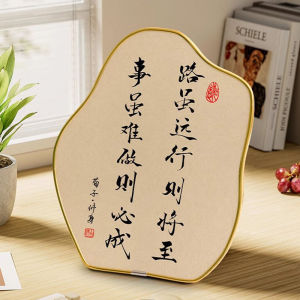 路虽远行则将至
事虽难做则必成
荀子·修身
SCHIELE